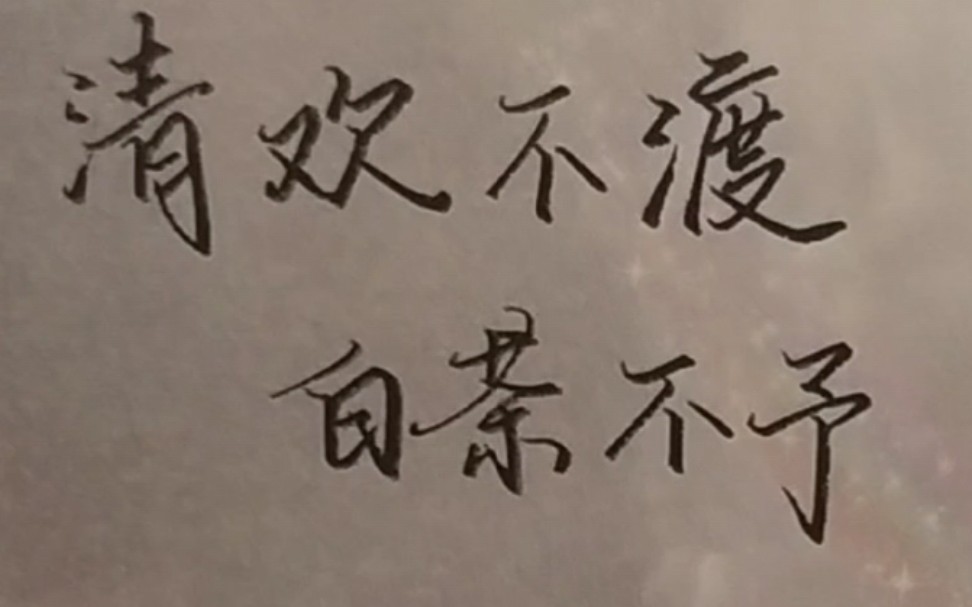 清欢不渡
白茶不予